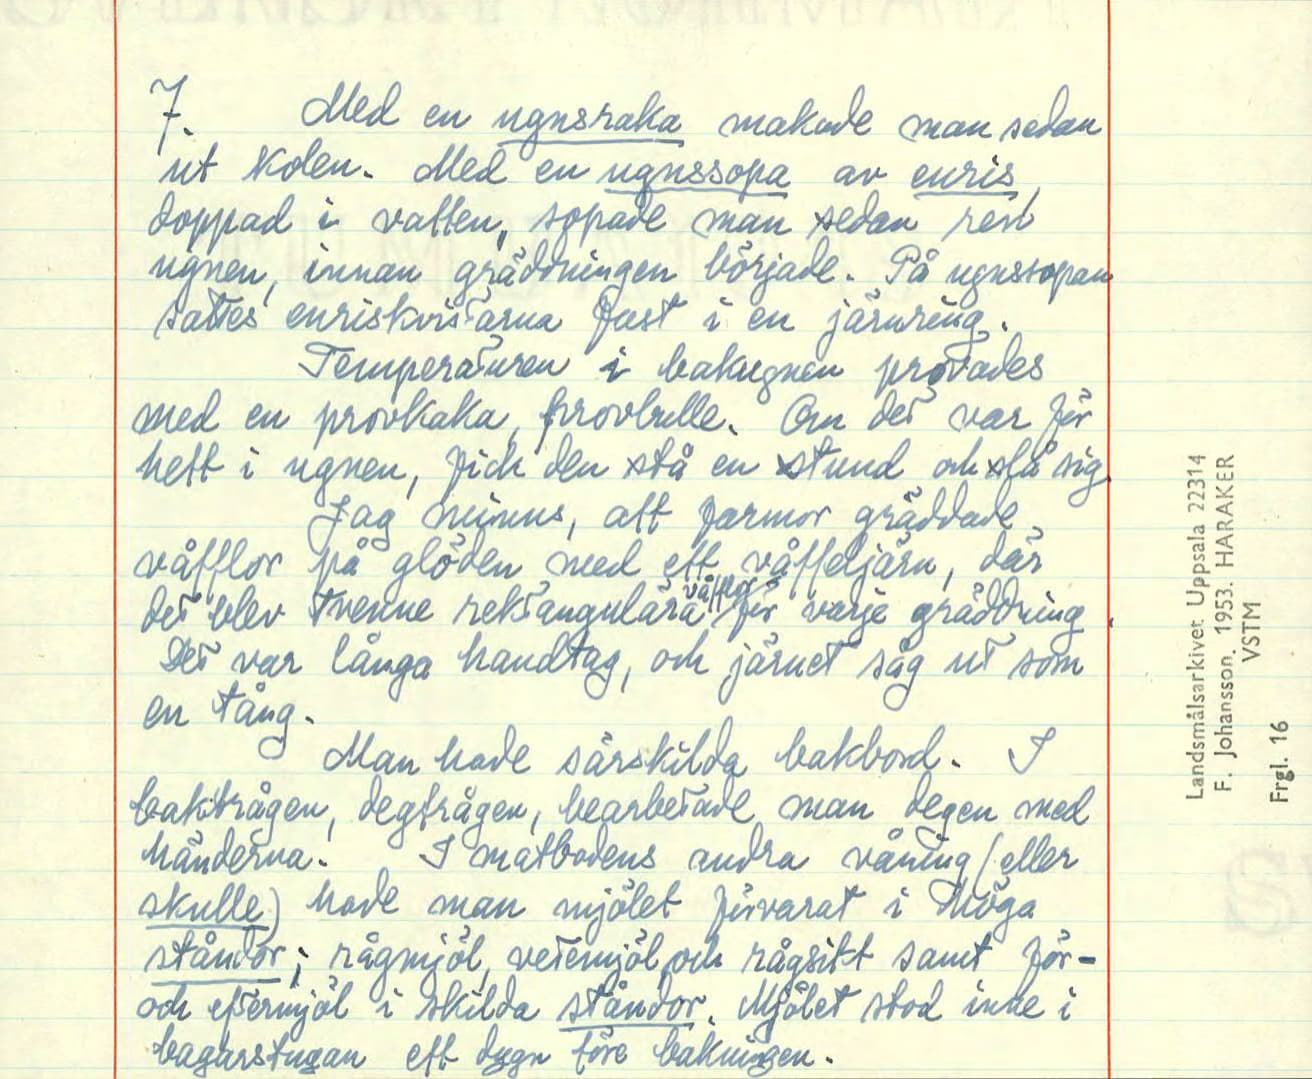 7. Med en ugnsraka makade man sedan
ut kolen. Med en ugnssopa av enris,
doppad i vatten, sopade man sedan rent
ugnen, innan gräddningen började. På ugnssopan
sattes enriskvistarna fast i en järnring.
Temperaturen i bakugnen provades
med en provkaka, provbulle. Om det var för
hett i ugnen, fick den stå en stund och slå sig.
Jag minns, att farmor gräddade
våfflor på glöden med ett våffeljärn, där
det blev tvenne rektangulära våfflor för varje gräddning.
Det var långa handtag, och järnet såg ut som
en tång.
Man hade särskilda bakbord. I
baktrågen, degtrågen, bearbetade man degen med
händerna. I matbodens andra våning (eller
skulle) hade man mjölet förvarat i höga
ståndor; rågmjöl, vetemjöl och rågsikt samt för-
och eftermjöl i skilda ståndor. Mjölet stod inne i
bagarstugan ett dygn före bakningen.
Landsmålsarkivet Uppsala 22314
F. Johansson. 1953. HARAKER
VSTM
Frgl. 16